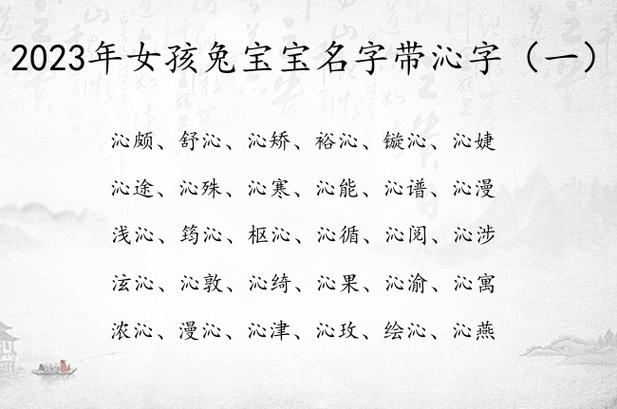 2023年女孩兔宝宝名字带沁字（一）
沁颇、舒沁、沁矫、裕沁、镟沁、沁婕
沁途、沁殊、沁寒、沁能、沁谱、沁漫
浅沁、筠沁、枢沁、沁循、沁阅、沁涉
泫沁、沁敦、沁绮、沁果、沁渝、沁寓
浓沁、漫沁、沁津、沁玫、绘沁、沁燕